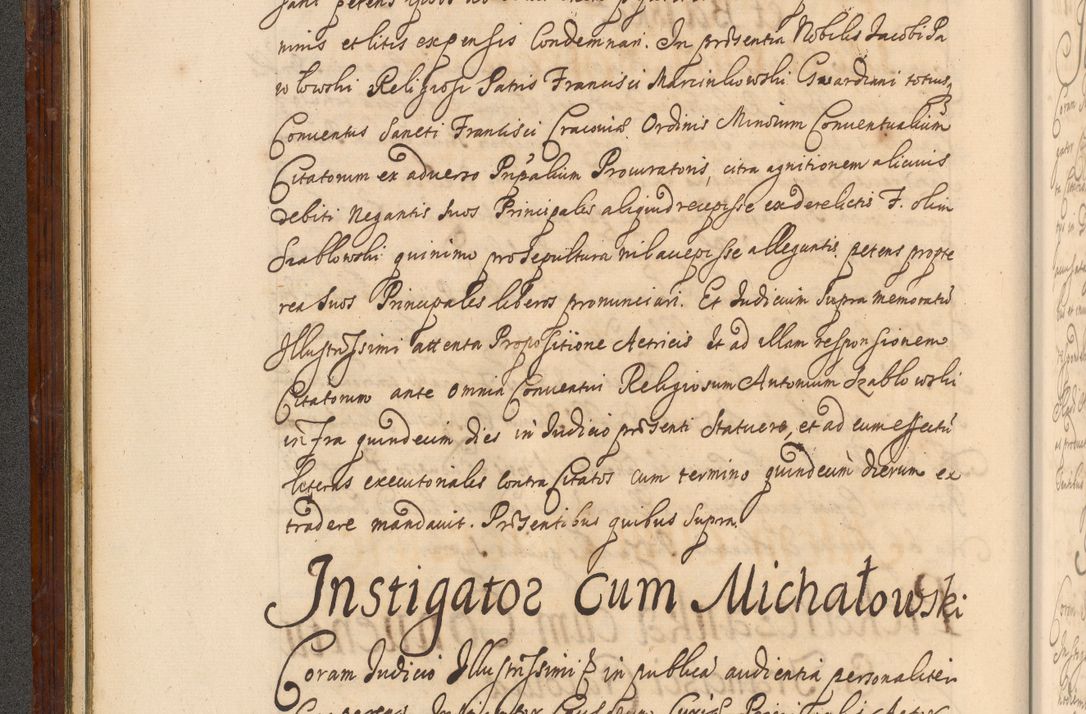 minis et litis expensis Condemnari. In prӕsentia Nobilis Jacobi Pa
włowski Religiosi Patris Francisci Marcinkowski Gwardiani totusq
Conventus Sancti Francisci Cracoviӕ Ordinis Minorum Conventualium
Citatorum ex adverso Prῖpalium Procuratoris, citra agnitionem alicuius
debiti Negantis Suos Principales aliquid recepisse ex derelictis F. olim
Szablowski quinimo pro Sepultura nil accepisse allegantis petens propte
rea Suos Principales liberos pronunciari. Et Judicium Supra memorati
Illustrissimi attenta Propositione Actricis et ad illam responsionem
Citatorum ante omnia Conventui Religiosum Antonium Szablowski
infra quindecim dies in Judicio prӕsenti Statuere, et ad eum effectū
literas executoriales contra Citatos cum termino quindecim dierum ex
tradere mandavit. Prӕsentibus quibus Supra.
Instigator Cum Michałowski
Coram Judicio Illustrissimi in publica audientia personaliter